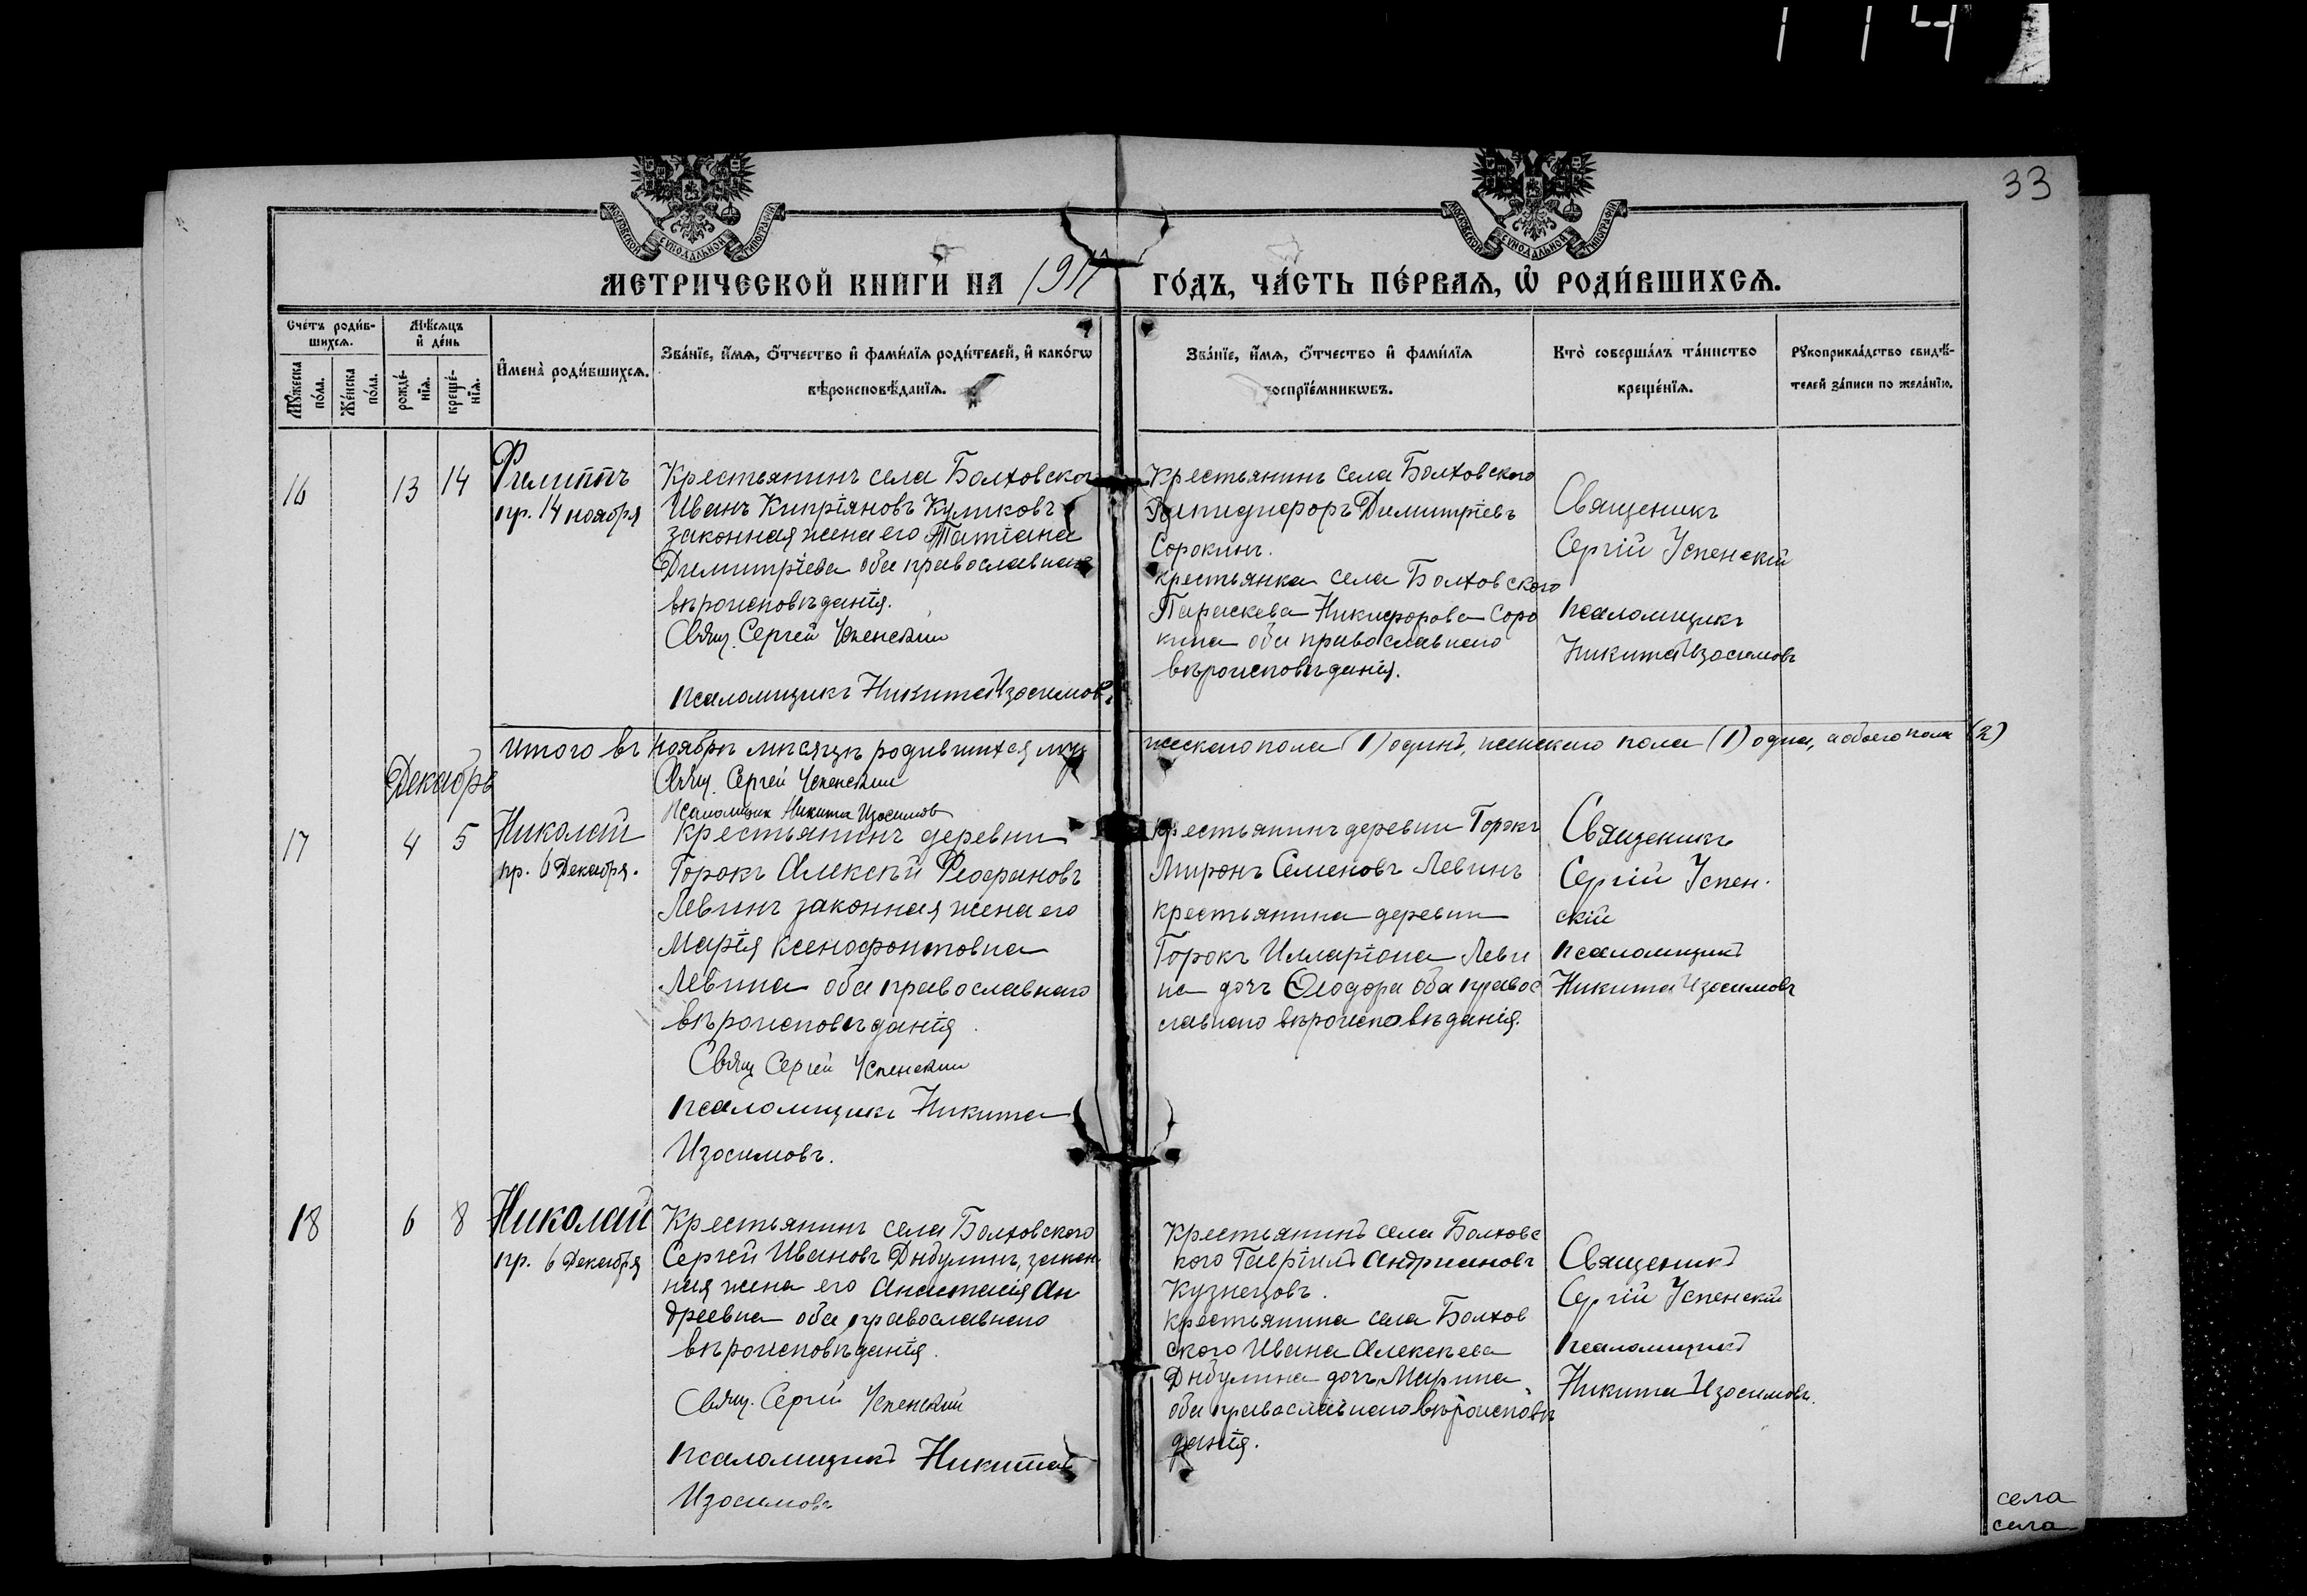 114
33
МОСКОВСКОЙ СѴНОДАЛЬНОЙ ТИПОГРАФІИ
МОСКОВСКОЙ СѴНОДАЛЬНОЙ ТИПОГРАФІИ
МЕТРИЧЕСКОЙ КНИГИ НА 1911 ГО́ДЪ, ЧА́СТЬ ПЕ́РВАЯ, Ѡ҆ РОДИ́ВШИХСѦ.
Сче́тъ роди́в-
шихсѧ.
Мꙋ́жеска по́ла.
Же́нска по́ла.
Мѣ́сѧцъ
и҆ де́нь
рожде́-
нїѧ.
креще́-
нїѧ.
И҆мена̀ роди́вшихсѧ.
Зва́нїе, и҆́мѧ, ѻ҆́тчество и҆ фами́лїѧ роди́телей, и҆ како́гѡ
вѣроисповѣ́данїѧ.
Зва́нїе, и҆́мѧ, ѻ҆́тчество и҆ фами́лїѧ
воспрїе́мникѡвъ.
Кто̀ соверша́лъ та́инство
креще́нїѧ.
Рꙋкоприкла́дство свидѣ́-
телей за́писи по жела́нїю.
16 13 14
Филиппъ
пр. 14 ноября
Крестьянинъ села Болховског
Иванъ Кипріяновъ Куликовъ
законная жена его Татіана
Димитріева оба православнаг
вѣроисповѣданія.
Свящ. Сергей Успенский
псаломщикъ Никита Изосимовъ
Крестьянинъ села Болховского
Димитріевъ
Сорокинъ.
крестьянка села Болховского
Параскева Никифорова Соро
кина оба православнаго
вѣроисповѣданія.
Священикъ
Сергій Успенскій
псаломщикъ
Никита Изосимовъ
итого въ ноябрѣ мѣсяцѣ родившихся муж жескаго пола (1) одинъ, женскаго пола (1) одна, а обоего пола (2)
Свящ. Сергей Успенский
Псаломщик Никита Изосимов
Декабрь
17 4 5
Николай
пр. 6 Декабря.
Крестьянинъ деревни
Горокъ Алексѣй Феофановъ
Левинъ законная жена его
Марія Ксенофонтовна
Левина оба православнаго
вѣроисповѣданія.
Свящ Сергей Успенский
псаломщикъ Никита
Изосимовъ.
Крестьянинъ деревни Горокъ
Миронъ Семеновъ Левинъ
крестьянина деревни
Горокъ Илларіона Леви
на дочь Ѳеодора оба правос
славнаго вѣроисповѣданія.
Священикъ
Сергій Успен-
скій
псаломщикъ
Никита Изосимовъ
18 6 8
Николай
пр. 6 Декабря
Крестьянинъ села Болховского
Сергей Ивановъ Дыбулинъ, закон
ная жена его Анастасія Ан
дреевна оба православнаго
вѣроисповѣданія.
Свящ. Сергій Успенский
псаломщикъ Никита
Изосимовъ
Крестьянинъ села Болховс
кого Гавріилъ Андриановъ
Кузнецовъ.
крестьянина села Болхов
ского Ивана Алексѣева
Дыбулина дочь Марина
оба православнаго вѣроисповѣ
данія.
Священикъ
Сергій Успенскій
псаломщикъ
Никита Изосимовъ.
села
села